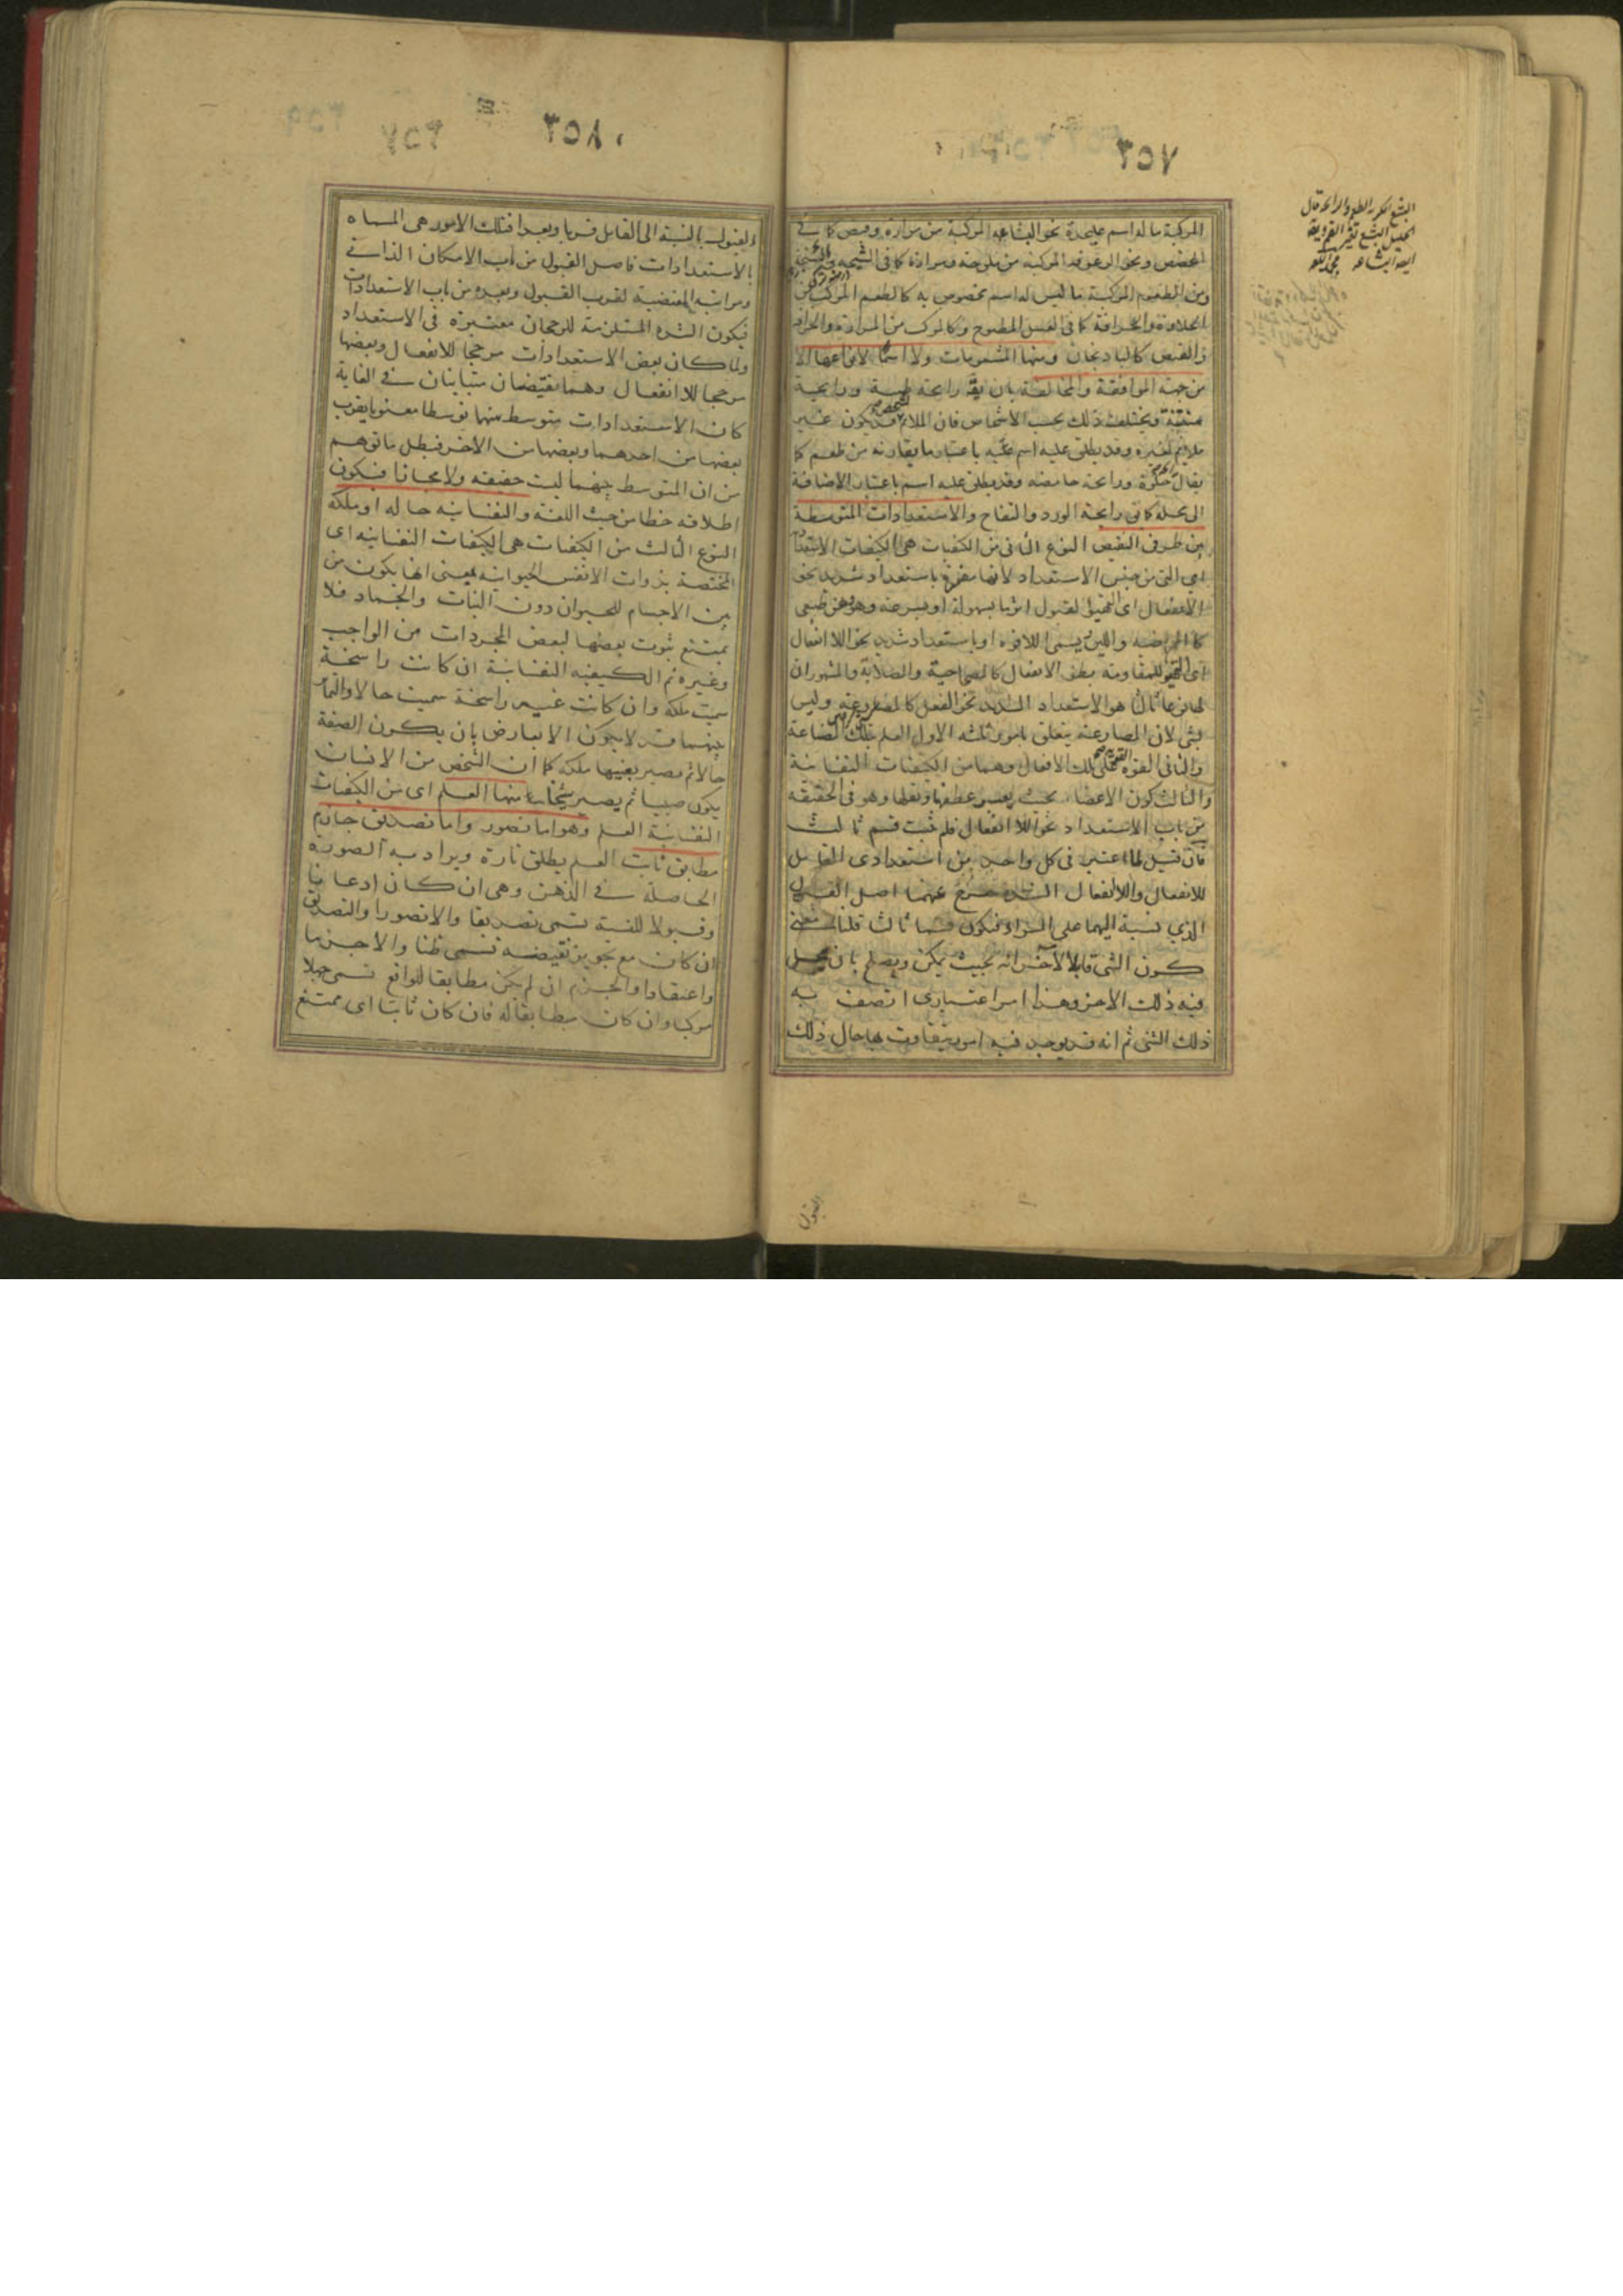 ٢٥٧
المركبة ماله اسم عليحدة نحو البشاعة المركبة من مرارة وقبض كما في
الحضض ونحو الزعوقة المركبة من ملوحة ومرارة كما في الشيحة
ومن الطعوم المركبة ما ليس له اسم مخصوص به كالطعم المركب من
الحلاوة والحرافة كما في العسل المطبوخ وكالمركب من المرارة والحرافة
والقبض كالباذنجان ومنها المشمومات ولا اسماء لانواعها الا
من جهة الموافقة والمخالفة بان يقال رايحة طيبة ورايحة
منتنة ويختلف ذلك بحسب الاشخاص فان الملائم قد يكون غير
ملايم لغيره وقد يطلق عليه اسم باعتبار ما يقارنه من طعم كما
يقال رايحة حلوة ورايحة حامضة وقد يطلق عليه اسم باعتبار الاضافة
الى محله كما في رايحة الورد والتفاح والاستعدادات المتوسطة
بين طرفي النقيض النوع الثاني من الكيفيات هي الكيفيات الاستعدادية
اي التي من جنس الاستعداد لانها مفسرة باستعداد شديد نحو
الانفعال اي التهيؤ لقبول اثر ما بسهولة او بسرعة وهو وهن طبيعي
كالممراضية واللين يسمى اللاقوة او باستعداد شديد نحو اللاانفعال
اي التهيؤ للمقاومة بطء الانفعال كالمصحاحية والصلابة والمشهور ان
لها نوعا ثالثا هو الاستعداد الشديد نحو الفعل كالمصارعة وليس
بشئ لان المصارعة يتعلق بامور ثلثة الاول العلم بتلك الصناعة
والثاني القوة على تلك الافعال وهما من الكيفيات النفسانية
والثالث كون الاعضاء بحيث يعسر عطفها ونقلها وهو في الحقيقة
من باب الاستعداد نحو اللاانفعال فلم يثبت قسم ثالث
فان قيل لما اعتبر في كل واحد من استعدادي القابل
للانفعال واللاانفعال الشدة خرج عنهما اصل القبول
الذي نسبة اليهما على السواء فيكون قسما ثالثا قلنا معنى
كون الشئ قابلا لآخر انه بحيث يمكن ويصلح بان يحصل
فيه ذلك الاخر وهذا امر اعتباري اتصف به
ذلك الشئ ثم انه قد يوجد فيه امور يتفاوت بها حال ذلك
القبول
٢٥٨
القبول بالنسبة الى القابل قربا وبعدا فتلك الامور هي المسماة
بالاستعدادات فاصل القبول من باب الامكان الذاتي
ومراتبه المقتضية لقرب القبول وبعده من باب الاستعدادات
فيكون الشدة المستلزمة للرجحان معتبرة في الاستعداد
ولما كان بعض الاستعدادات مرجحا للانفعال وبعضها
مرجحا للاانفعال وهما نقيضان متباينان في الغاية
كان الاستعدادات متوسط بينهما توسطا معنويا يقرب
بعضها من احدهما وبعضها من الاخر فبطل ما توهم
من ان المتوسط بينهما ليست حقيقة ولا مجازا فيكون
اطلاقه خطا من حيث اللغة والنفسانية حالة او ملكة
النوع الثالث من الكيفيات هي الكيفيات النفسانية اي
المختصة بذوات الانفس الحيوانية بمعنى انها يكون من
بين الاجسام للحيوان دون النبات والجماد فلا
يمتنع ثبوت بعضها لبعض المجردات من الواجب
وغيره ثم الكيفية النفسانية ان كانت راسخة
سميت ملكة وان كانت غير راسخة سميت حالا والتمايز
بينهما قد لا يكون الا بعارض بان يكون الصفة
حالا ثم تصير بعينها ملكة كما ان الشخص من الانسان
يكون صبيا ثم يصير شيخا منها العلم اي من الكيفيات
النفسانية العلم وهو اما تصور واما تصديق جازم
مطابق ثابت العلم يطلق تارة ويراد به الصورة
الحاصلة في الذهن وهي ان كان اذعانا
وقبولا للنسبة تسمى تصديقا والا تصورا والتصديق
ان كان مع تجويز نقيضه تسمى ظنا والا جزما
واعتقادا والجزم ان لم يكن مطابقا للواقع تسمى جهلا
مركبا وان كان مطابقا له فان كان ثابتا اي ممتنع